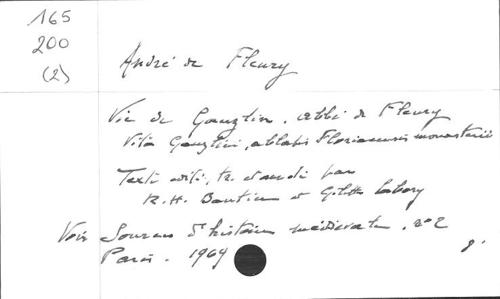 165
200
(2)
André de Fleury
Vie de Gauzlin, abbé de Fleury
Vita Gauzlini, abbatis Floriacensis monasterii
Texte édité, tr. et annoté par
R.H. Bautier et Gillette Labory
Voir Sources d'histoire médiévale, n° 2
Paris. 1969